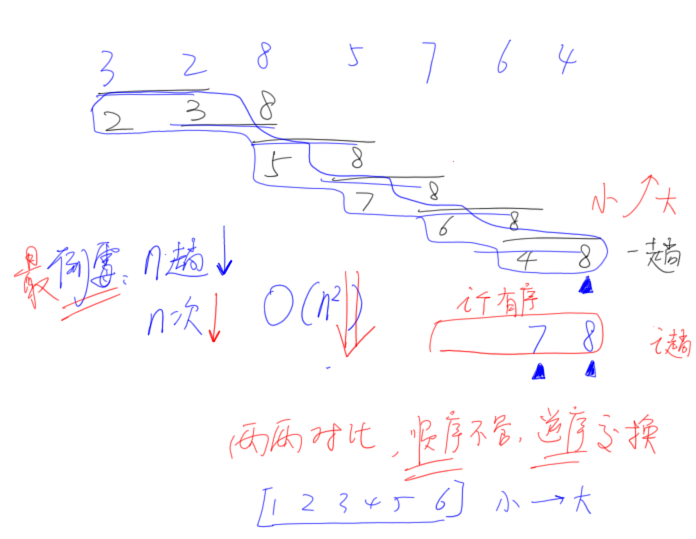 3 2 8 5 7 6 4
2 3 8
5 8
7 8
6 8
小 ↗ 大
4 8 一趟
最倒霉: n趟↓
n次↓ O(n²)
有序
7 8 趟
两两对比, 顺序不管, 逆序交换
[1 2 3 4 5 6] 小 → 大